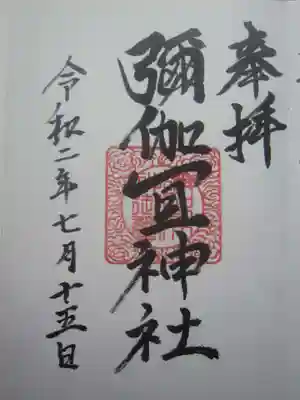 奉拝
彌伽宜神社
令和二年七月十五日